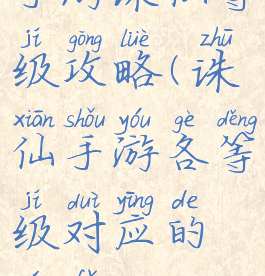 jí gōng lüè zhū
级攻略(诛
xiān shǒu yóu gè děng
仙手游各等
jí duì yīng de
级对应的